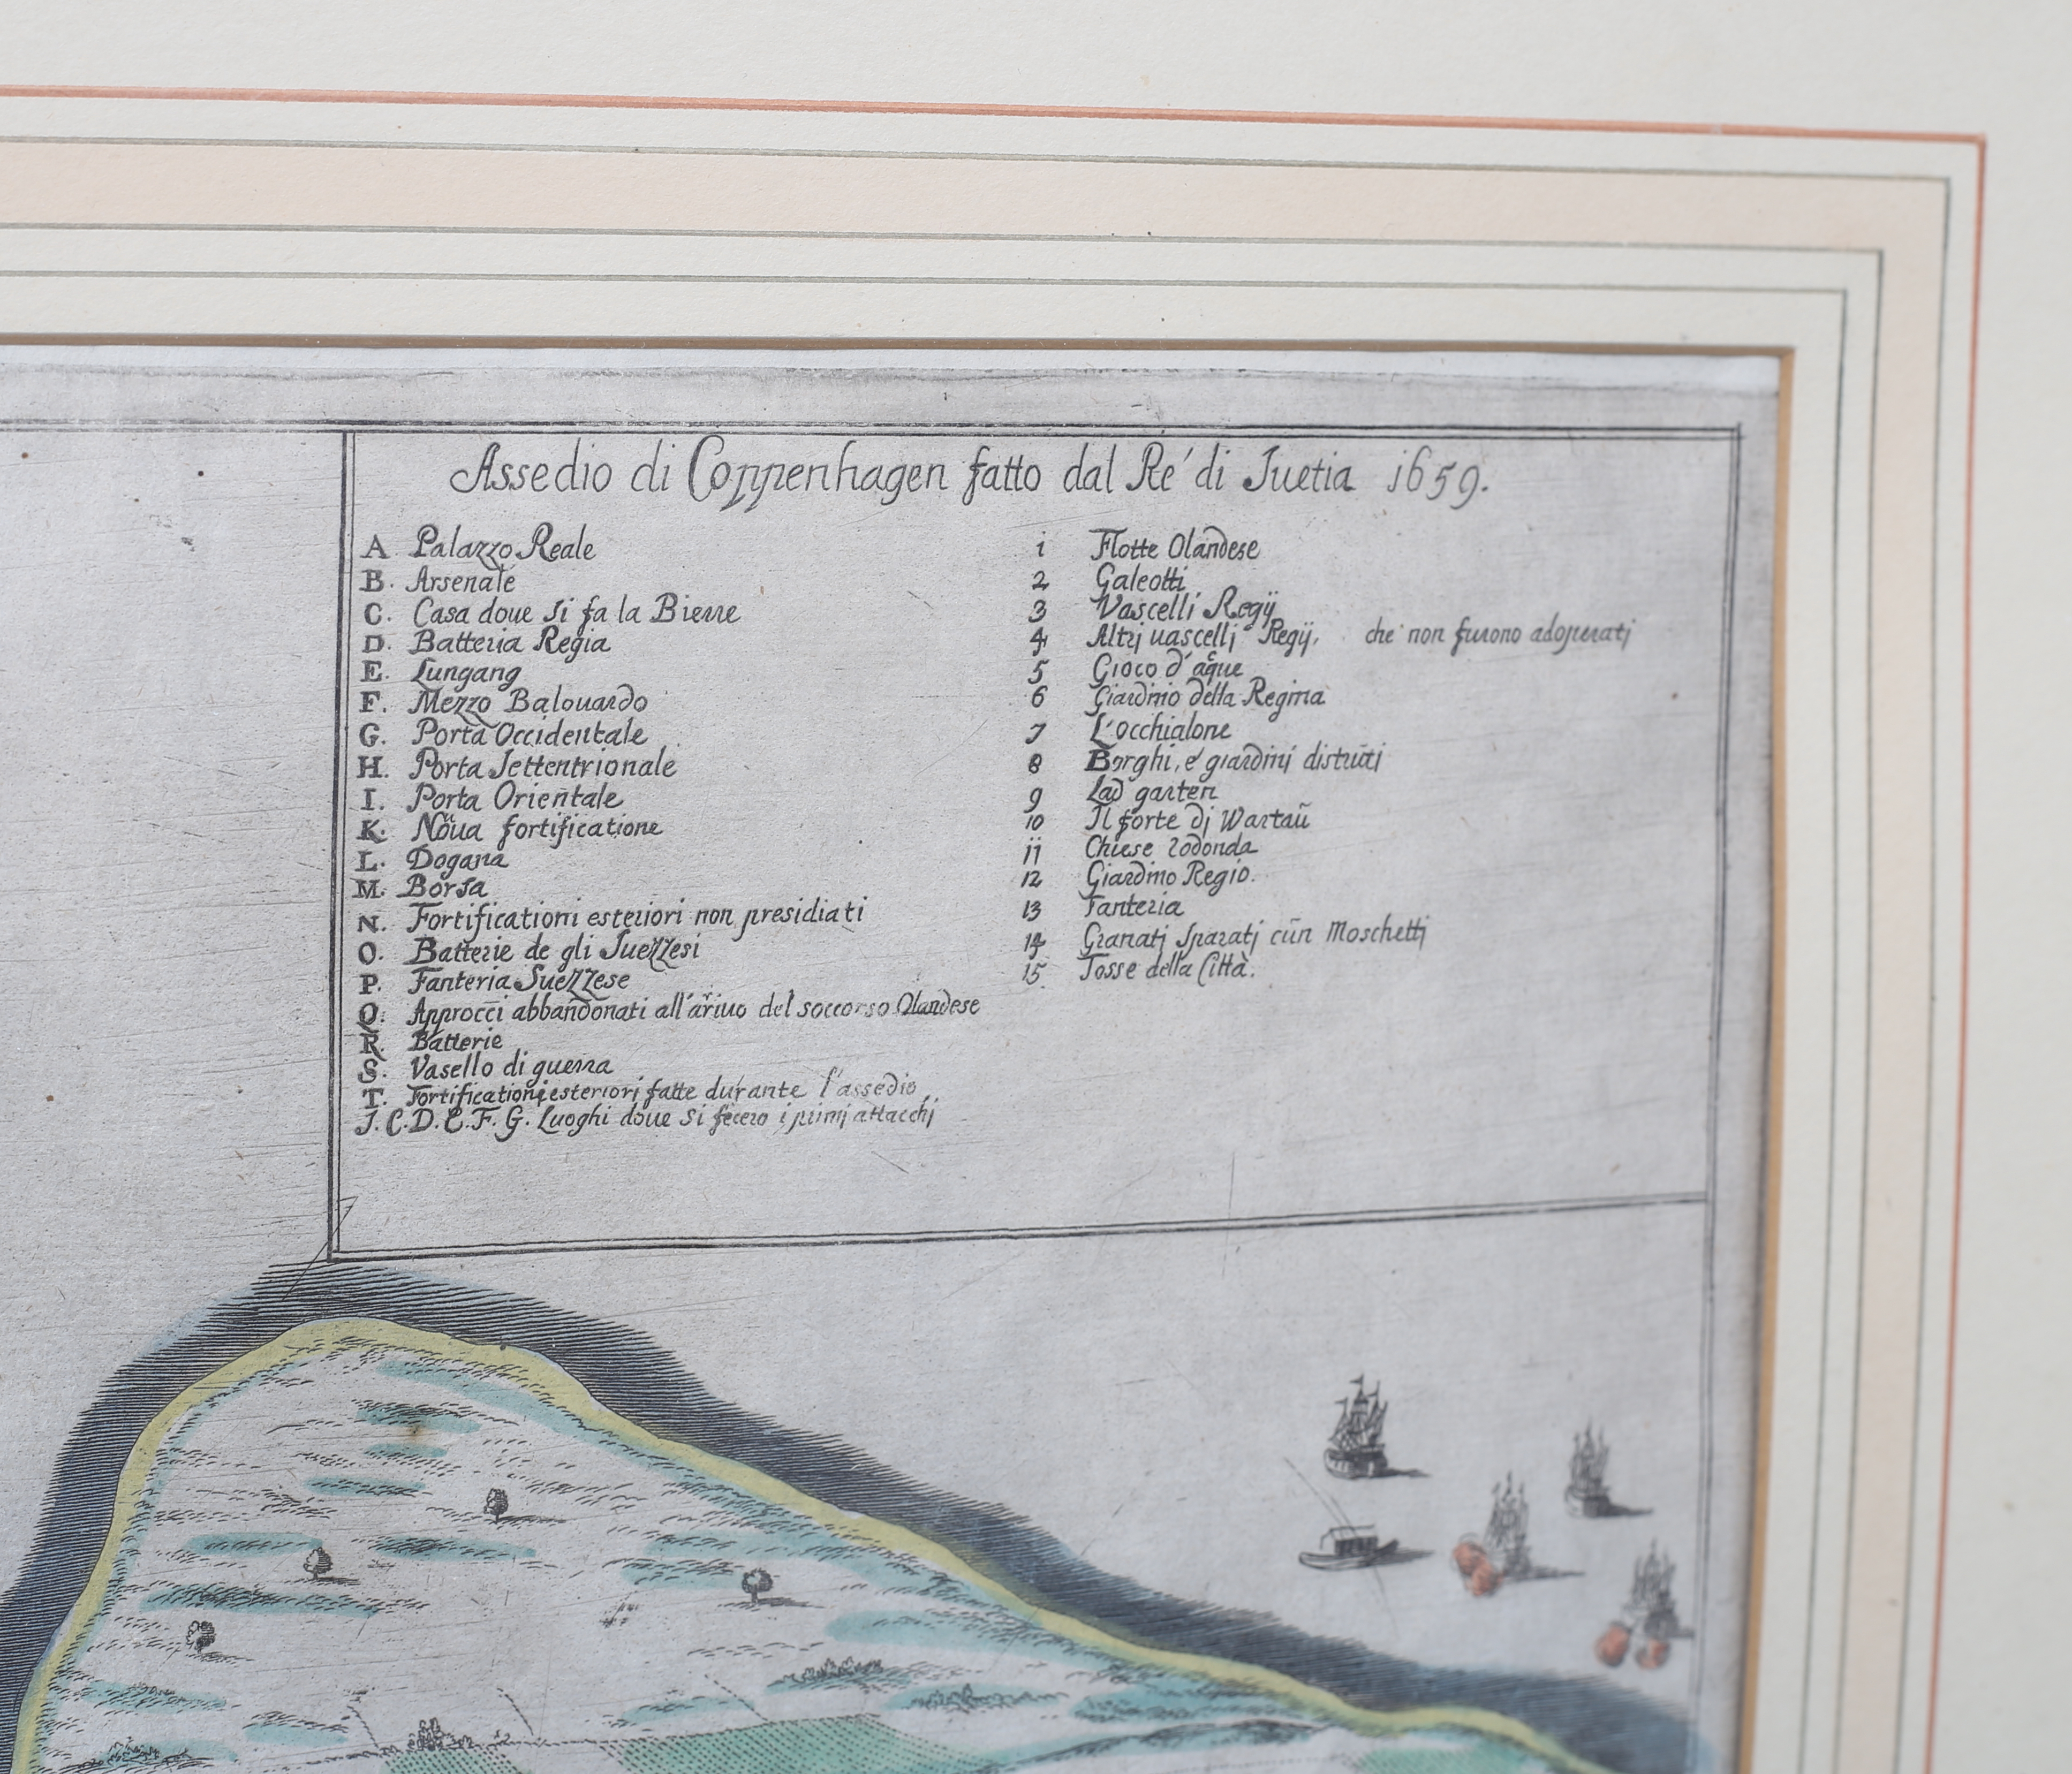 Assedio di Coppenhagen fatto dal Re' di Suetia 1659.
A Palazzo Reale
B. Arsenale
C. Casa doue si fa la Bierre
D. Batteria Regia
E. Lungang
F. Mezzo Balouardo
G. Porta Occidentale
H. Porta Settentrionale
I. Porta Orientale
K. Noũua fortificatione
L. Dogana
M. Borsa
N. Fortificationi esteriori non presidiati
O. Batterie de gli Suezzesi
P. Fanteria Suezzese
Q. Approcci abbandonati all'ariuo del soccorso Olandese
R. Batterie
S. Vasello di guerra
T. Fortificationi esteriori fatte durante l'assedio
J. C. D. E. F. G. Luoghi doue si fecero i primi attacchi
1 Flotte Olandese
2 Galeotti
3 Vascelli Regij
4 Altrj uascellj Regij, che non furono adoperati
5 Gioco d'acque
6 Giardino della Regina
7 L'occhialone
8 Borghi, e' giardini distruti
9 Lad garten
10 Il forte dj Wartaũ
11 Chiese rodonda
12 Giardino Regio.
13 Fanteria
14 Granatj sparatj cũn Moschettj
15. Fosse della Città.